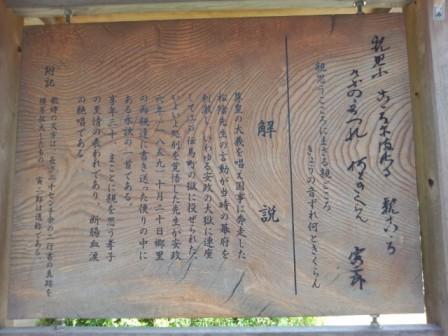 親思ふこゝろにまさる親こゝろ
けふの音つれ何ときくらん 寅二郎
親思うこころにまさる親ごころ
きょうの音ずれ何ときくらん
解説
尊皇の大義を唱え国事に奔走した
松陰先生の言動が当時の幕府を
刺激し、いわゆる安政の大獄に連座
して江戸伝馬町の獄に投ぜられた。
いよいよ処刑を覚悟した先生が安政
六年(一八五九)十月二十日郷里
の両親達に書き送った便りの中に
ある永訣の一首である。
享年三十、まことに親を思う孝子
の至情の表われであり、断腸血涙
の絶唱である。
附記
歌碑の文字は、長さ三十七センチの二行書の真蹟を
拡大したもの、寅二郎は通称である。